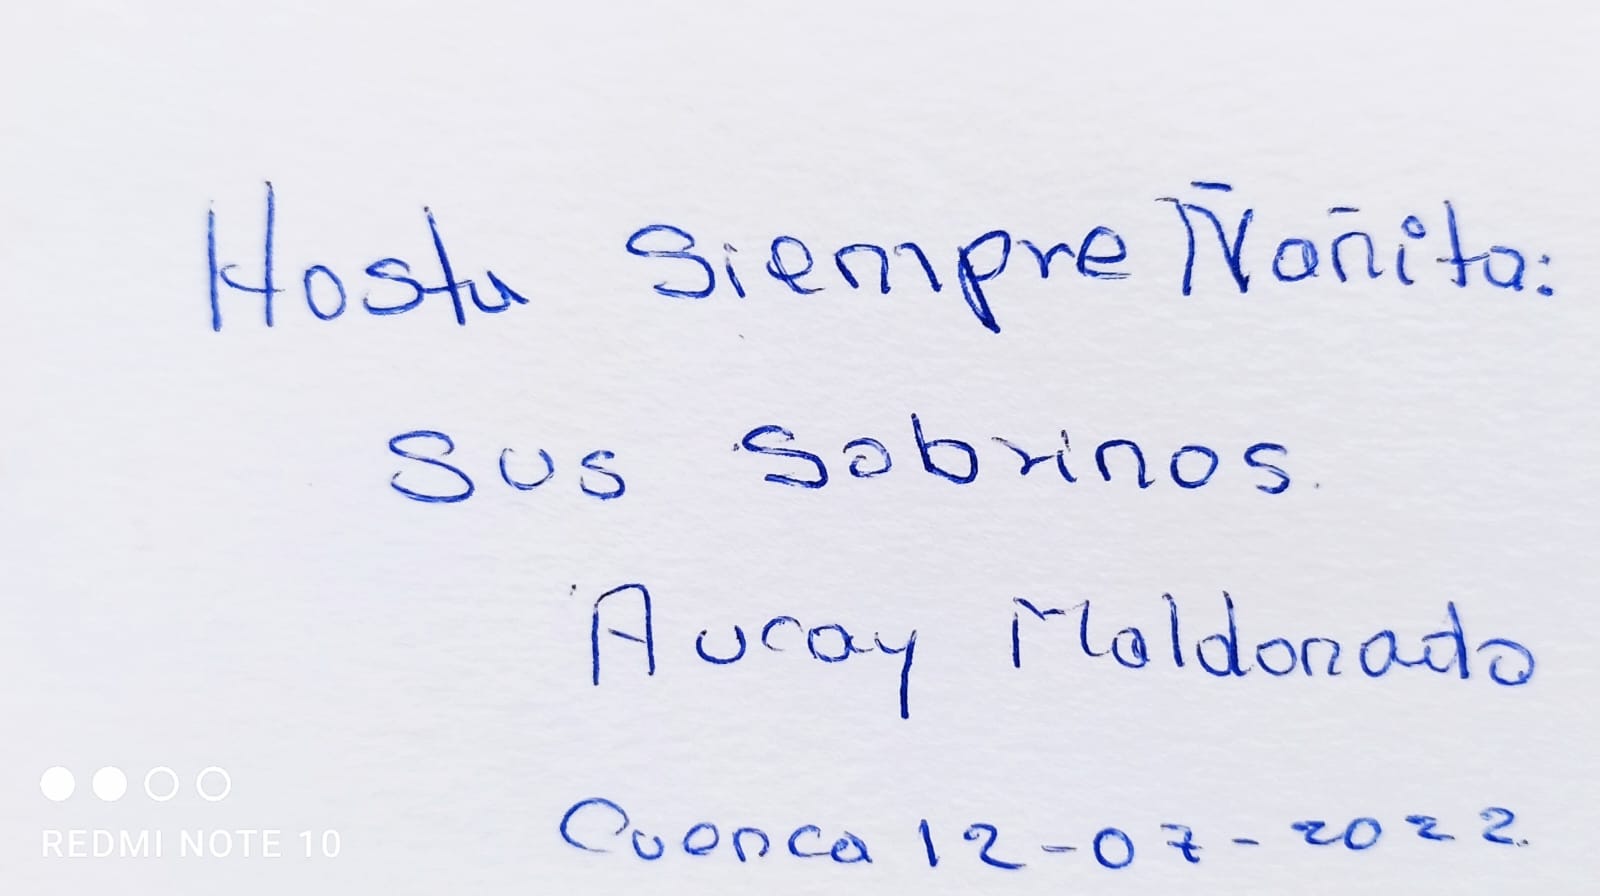 Hasta Siempre Ñañita:
Sus Sobrinos.
Aucay Maldonado
Cuenca 12-07-2022.
REDMI NOTE 10